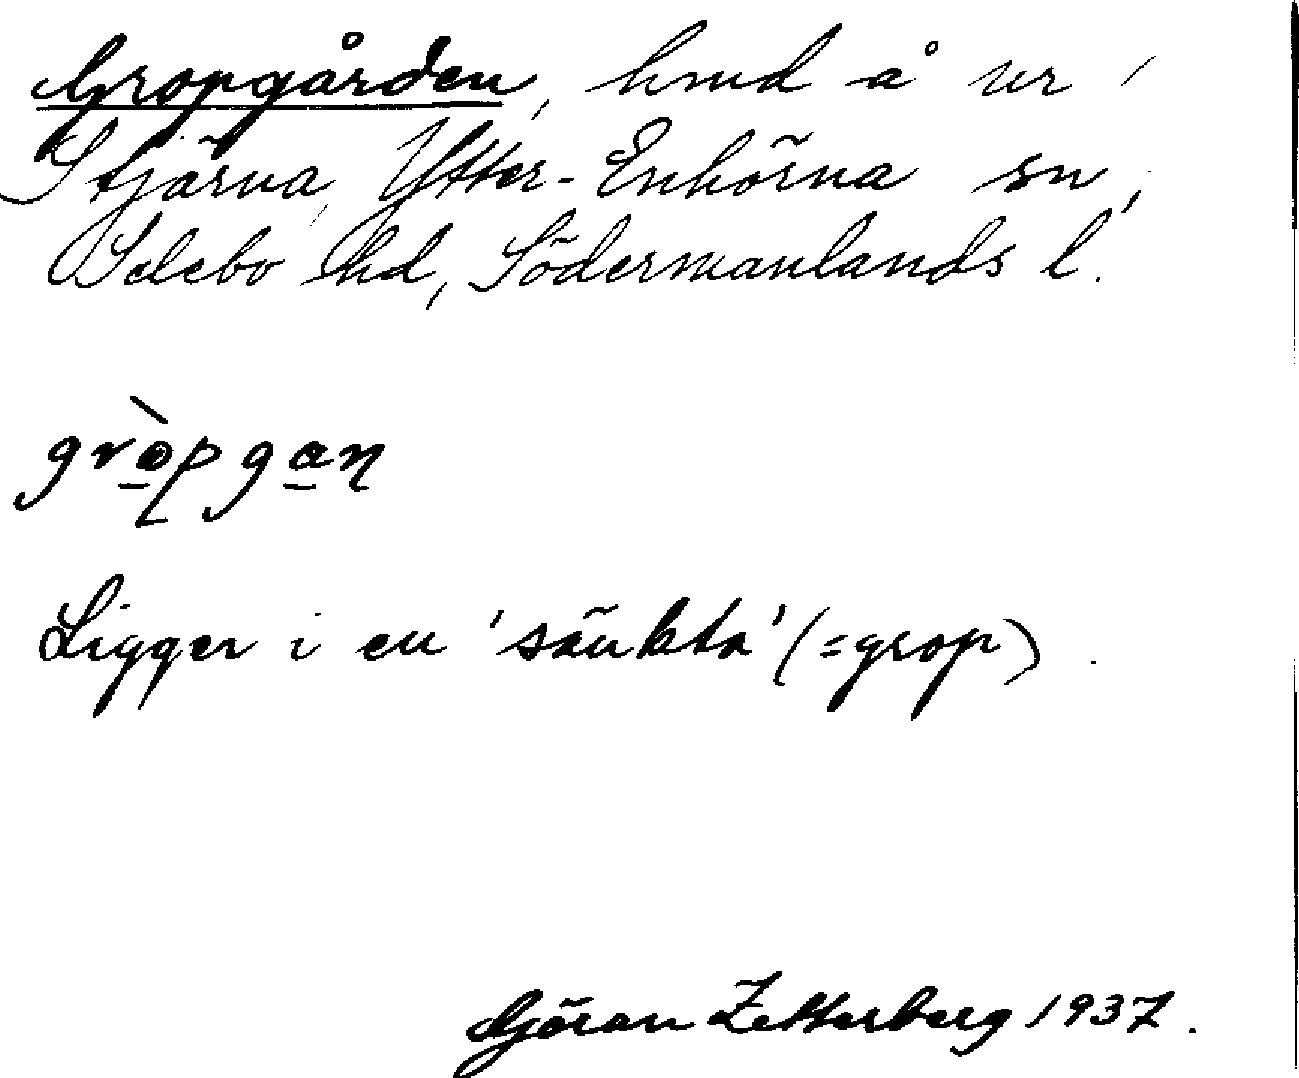 Gropgården, hmd å nr 1
Stjärna, Ytter-Enhörna sn,
Selebo hd, Södermanlands l.
gròpgan
Ligger i en 'säukta' (=grop).
Göran Zetterberg 1937.